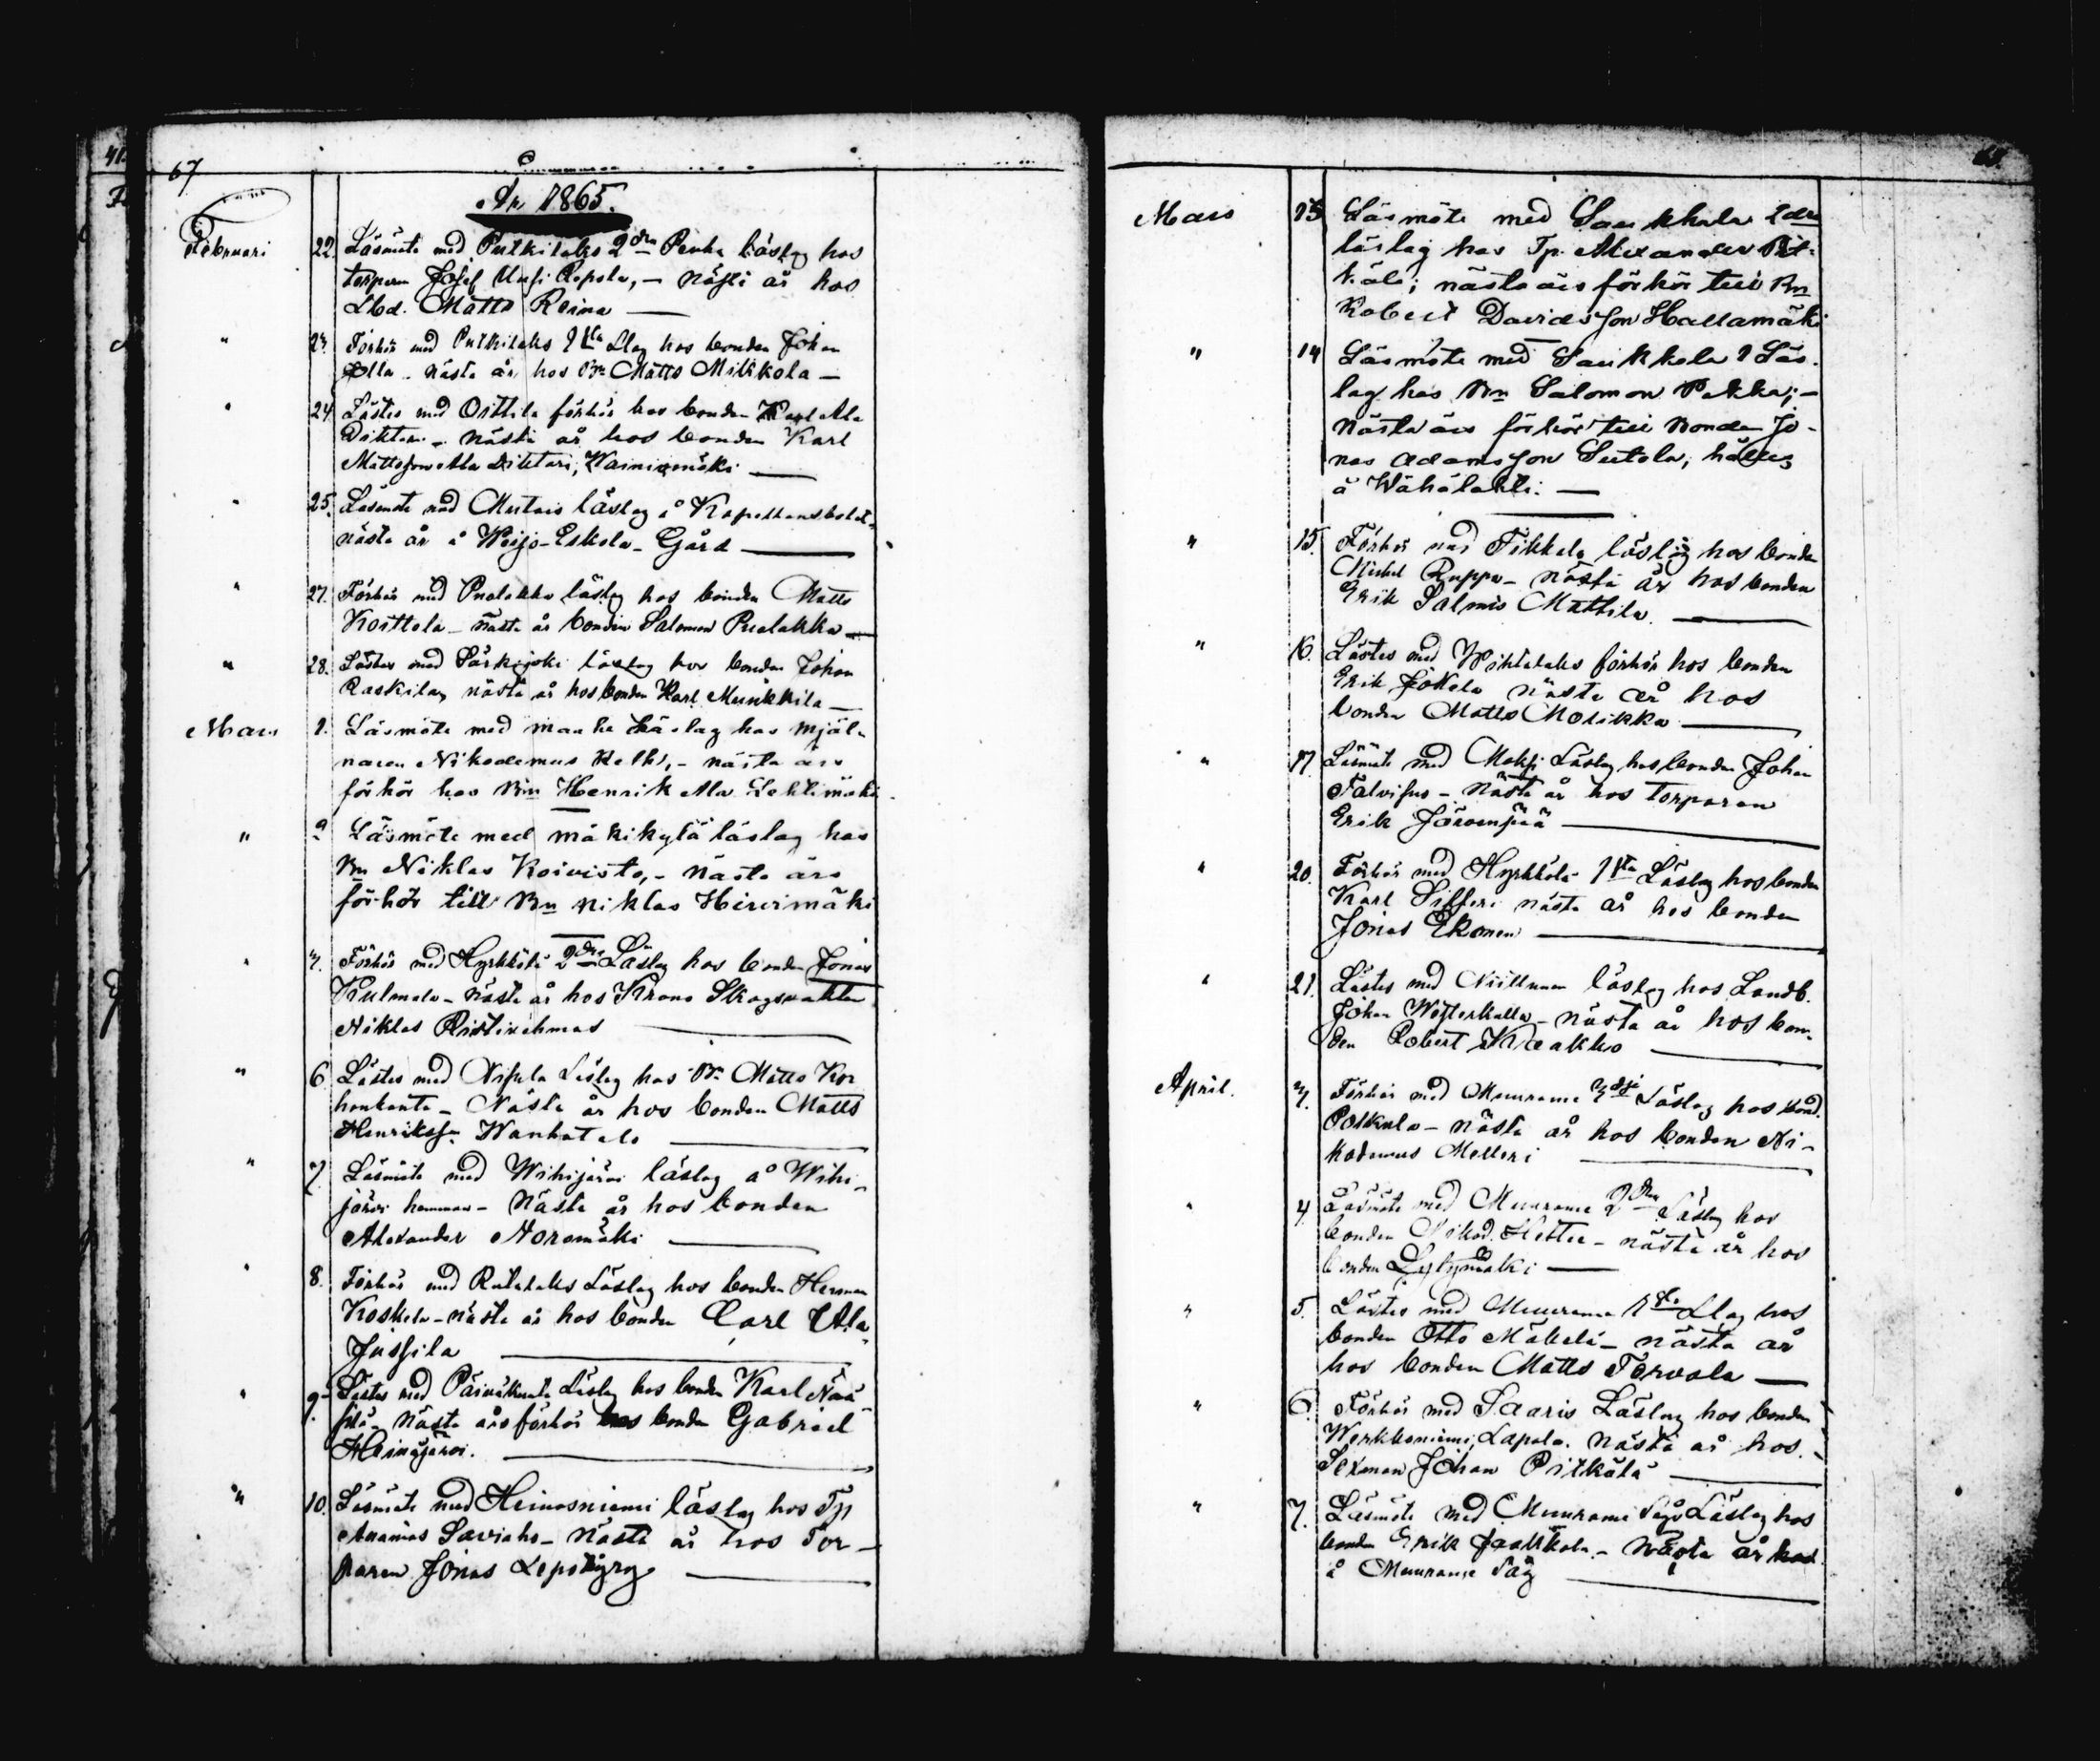 67
År 1865.
Februari 22. Läsmöte med Putkilaks 2dra Penka läslag hos
torparen Josef Uusi Repola, – Nästa år hos
Lbd. Matts Reina —
" 23. Förhör med Putkilaks 1sta Llag hos bonden Johan
Jolla – nästa år hos Bn Matts Mikkola —
" 24 Lästes med Osttila förhör hos bonden Karl Ala
Diktari – nästa år hos bonden Karl
Mattsson Ala Diktari, Wainionmäki —
" 25. Läsmöte med läslag å Kapellansbolet,
nästa år å Weijo-Eskola Gård —
" 27. Förhör med Puolakka läslag hos bonden Matts
Kosttola – nästa år bonden Salomon Puolakka —
" 28. Lästes med Särkijoki läslag hos bonden Johan
Raskila, nästa år hos bonden Karl Munkkila —
Mars 1. Läsmöte med läslag hos Mjöl-
naren Nikodemus – nästa års
förhör hos Bn Henrik Ala Lehtimäki
" 2 Läsmöte med mäkikylä läslag hos
Bn Niklas Koivisto, – nästa års
förhör till Bn Niklas Hirvimäki
" 3. Förhör med Hyrkkölä 2dra Läslag hos bonden Jonas
Kulmala – nästa år hos Krono Skogsvakten
Niklas Ristirehmas —
" 6 Lästes med Nisula Läslag hos Bn Matts Kor
honkanta – Nästa år hos bonden Matts
Henrikss. Wanhatalo —
" 7. Läsmöte med Wihijärvi läslag å Wihi-
järvi hemman – Nästa år hos bonden
Alexander Noromäki —
" 8. Förhör med Läslag hos bonden Herman
Koskela – nästa år hos bonden Carl Ala
Jussila —
" 9. Lästes med Läslag hos bonden Karl
nästa års förhör hos bonden Gabriel
Heinäjärvi. —
" 10. Läsmöte med Heinosniemi läslag hos Tp
Ananias Saviaho – Nästa år hos Tor-
paren Jonas —
Mars 13 Läsmöte med Saukkola 2dra
läslag hos Tp. Alexander Pit-
kälä; nästa års förhör till Bn
Robert Davidsson Hallamäki
" 14 Läsmöte med Saukkola 1 Läs-
lag hos Bn Salomon Pekka; –
Nästa års förhör till Bonden Jo-
nas Adamsson Sutela, hålles
å Wähälahti. —
" 15. Förhör med Tikkala läslag hos bonden
Michel Ruppa – Nästa år hos bonden
Erik Salmis Mattila. —
" 16. Lästes med Wihtalaks förhör hos bonden
Erik Jokela nästa år hos
bonden Matts —
" 17. Läsmöte med Läslag hos bonden Johan
Talvisuo – Nästa år hos torparen
Erik Järvenpää —
" 20. Förhör med Hyrkkölä 1sta Läslag hos bonden
Karl Sifferi nästa år hos bonden
Jonas Ekonen —
" 21. Lästes med läslag hos Landb.
Johan Westerkulla – nästa år hos bon-
den Robert Kaakko —
April. 3. Förhör med Muurame 3dje Läslag hos bond.
Polkula – nästa år hos bonden Ni-
kodemus Melleri —
" 4. Läsmöte med Muurame 2dra Läslag hos
bonden Nikod. Hettee – nästa år hos
bonden —
" 5. Lästes med Muurame 1sta Llag hos
bonden Otto Mäkelä – nästa år
hos bonden Matts Tervala —
" 6. Förhör med Saaris Läslag hos bonden
Werkkoniemi, Lapola. Nästa år hos
Sexman Johan Pitkälä —
" 7. Läsmöte med Muurame Sågs Läslag hos
bonden Erik Jaakkola – Nästa år hos
å Muurame Såg —